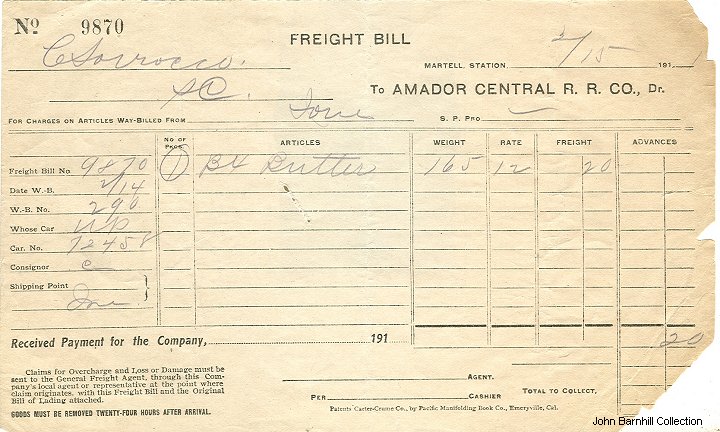 No 9870
FREIGHT BILL
C Sorrocco.
MARTELL, STATION, 2/15 191
SC.
To AMADOR CENTRAL R. R. CO., Dr.
FOR CHARGES ON ARTICLES WAY-BILLED FROM Ione S. P. PRO
NO OF PKGS. ARTICLES WEIGHT RATE FREIGHT ADVANCES
Freight Bill No 9870 1 Bx Butter 165 12 20
Date W.-B. 2/14
W.-B. No. 290
Whose Car UP
Car. No. 72458
Consignor C
Shipping Point
Ione
20
Received Payment for the Company, 191
Claims for Overcharge and Loss or Damage must be
sent to the General Freight Agent, through this Com-
pany's local agent or representative at the point where
claim originates, with this Freight Bill and the Original
Bill of Lading attached.
GOODS MUST BE REMOVED TWENTY-FOUR HOURS AFTER ARRIVAL.
AGENT.
PER CASHIER TO TOTAL COLLECT,
Patents Carter-Crume Co., by Pacific Manifolding Book Co., Emeryville, Cal.
John Barnhill Collection